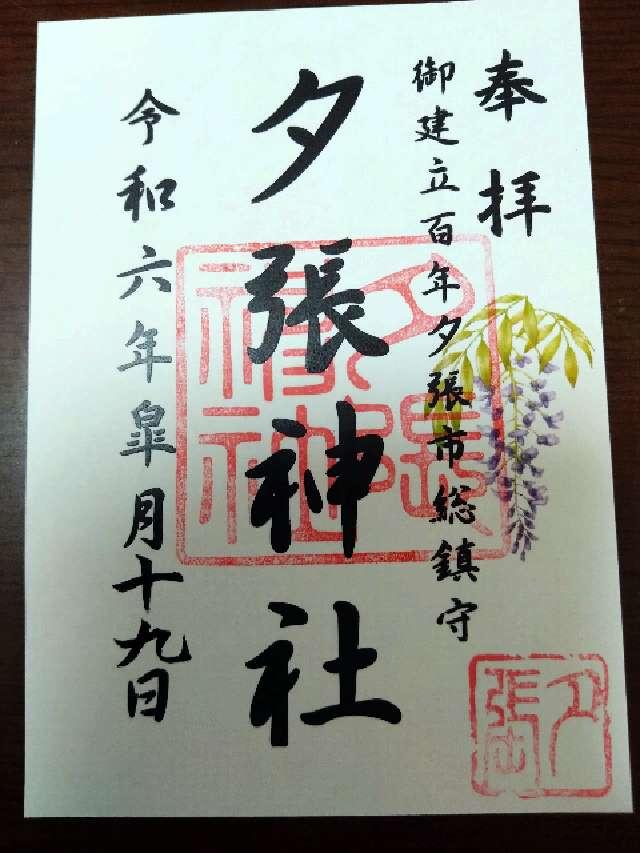 奉拝
御建立百年夕張市総鎮守
夕張神社
令和六年皐月十九日
夕張